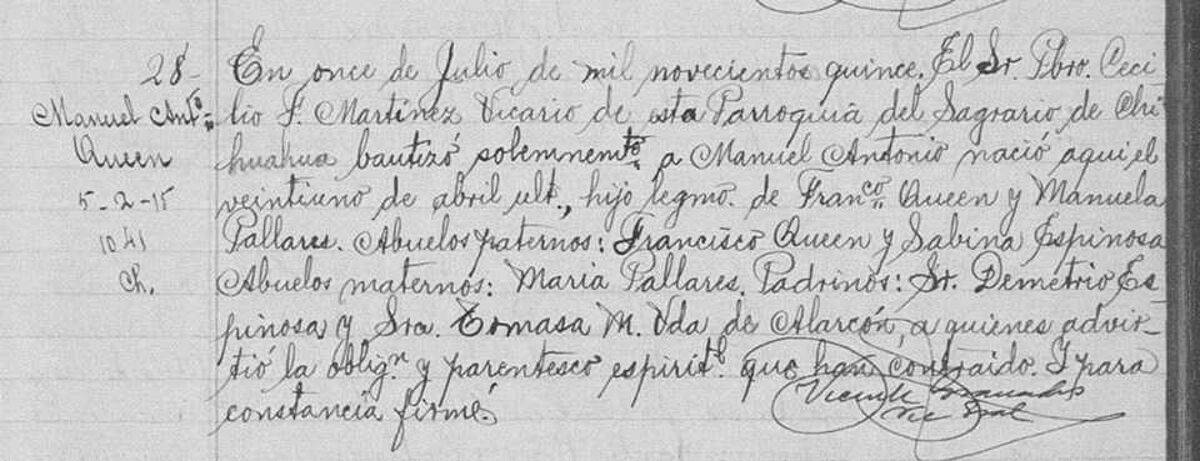 28-
Manuel Antº
Queen
5-2-15
1041
Ch.
En once de Julio de mil novecientos quince. El Sr. Pbro. Ceci
lio F. Martínez Vicario de esta Parroquia del Sagrario de Chi
huahua bautizó solemnemte a Manuel Antonio nació aqui el
veintiuno de abril ult., hijo legmo. de Franco Queen y Manuela
Pallares. Abuelos paternos: Francisco Queen y Sabina Espinosa
Abuelos maternos: Maria Pallares. Padrinos: Sr. Demetrio Es-
pinosa y Sra. Tomasa M. Vda de Alarcón, a quienes advir-
tió la oblign. y parentesco espiritl. que han contraido. I para
constancia firmé.
Vicente Granados
Vic Gral